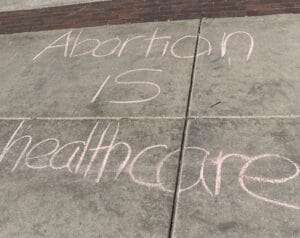 Abortion
IS
healthcare